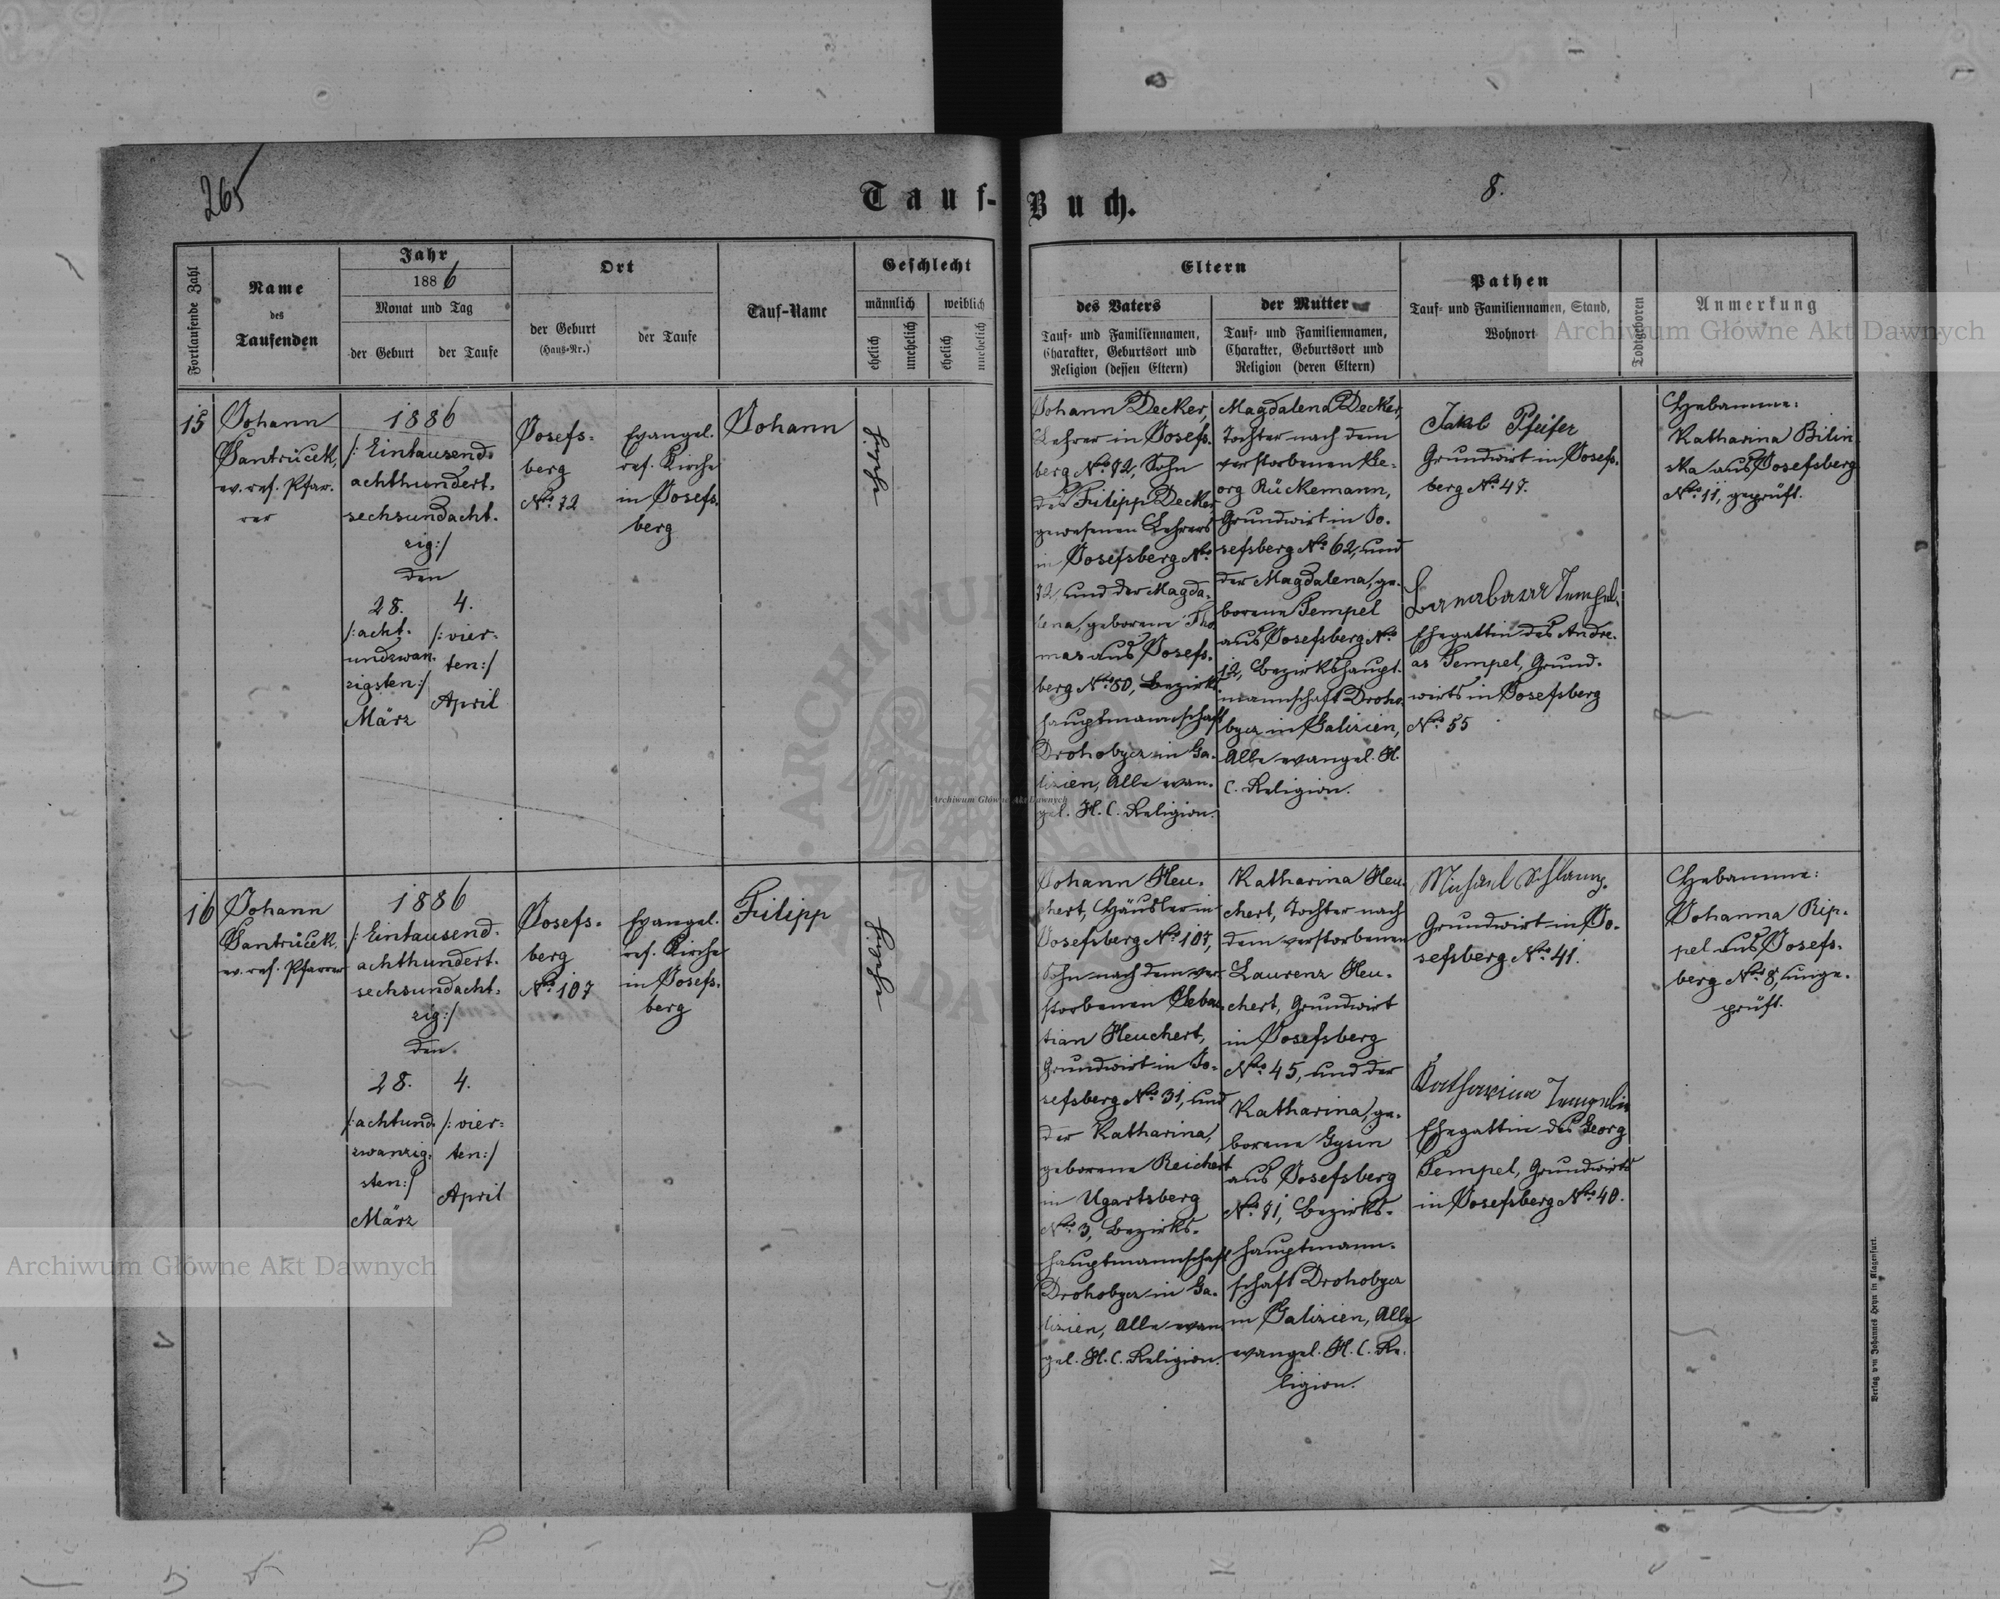 265
8.
Tauf-Buch.
Fortlaufende Zahl
Name
des
Taufenden
Jahr
1886
Monat und Tag
der Geburt
der Taufe
Ort
der Geburt
(Haus-Nr.)
der Taufe
Tauf-Name
Geschlecht
männlich
weiblich
ehelich
unehelich
ehelich
unehelich
Eltern
des Vaters
Tauf- und Familiennamen,
Charakter, Geburtsort und
Religion (dessen Eltern)
der Mutter
Tauf- und Familiennamen,
Charakter, Geburtsort und
Religion (deren Eltern)
Pathen
Tauf- und Familiennamen, Stand,
Wohnort
Todtgeboren
Anmerkung
15
Johann
Santrůček,
ev. ref. Pfar-
rer
1886
/: Eintausend-
achthundert-
sechsundacht-
zig :/
den
28.
/: acht-
undzwan-
zigsten :/
März
4.
/: vier-
ten :/
April
Josefs-
berg
No. 72
Evangel.
ref. Kirche
in Josefs-
berg
Johann
ehelich
Johann Decker,
Lehrer in Josefs-
berg No. 72, Sohn
des Filipp Decker
gewesenen Lehrers
in Josefsberg No.
72, und der Magda-
lena, geborene Tho-
mas aus Josefs-
berg No. 80, Bezirks-
hauptmannschaft
Drohobycz in Ga-
lizien, Alle evan-
gel. H. C. Religion.
Magdalena Decker,
Tochter nach dem
verstorbenen Ge-
org Rückemann,
Grundwirt in Jo-
sefsberg No. 62, und
der Magdalena, ge-
borene Tempel
aus Josefsberg No.
12, Bezirkshaupt-
mannschaft Droho-
bycz in Galizien,
Alle evangel. H.
C. Religion.
Jakob Pfeifer
Grundwirt in Josefs-
berg No. 47.
Tempel,
Ehegattin des Andre-
as Tempel, Grund-
wirts in Josefsberg
No. 55
Hebamme:
Katharina Bilin-
ska aus Josefsberg
No. 11, geprüft.
16
Johann
Santrůček,
ev. ref. Pfarrer
1886
/: Eintausend-
achthundert-
sechsundacht-
zig :/
den
28.
/: achtund-
zwanzig-
sten :/
März
4.
/: vier-
ten :/
April
Josefs-
berg
No. 107
Evangel.
ref. Kirche
in Josefs-
berg
Filipp
ehelich
Johann Heu-
chert, Häusler in
Josefsberg No. 107,
Sohn nach dem ver-
storbenen Sebas-
tian Heuchert,
Grundwirt in Jo-
sefsberg No. 31, und
der Katharina,
geborene Reichert
in Ugartsberg
No. 3, Bezirks-
hauptmannschaft
Drohobycz in Ga-
lizien, Alle evan-
gel. H. C. Religion.
Katharina Heu-
chert, Tochter nach
dem verstorbenen
Laurenz Heu-
chert, Grundwirt
in Josefsberg
No. 45, und der
Katharina, ge-
borene Gysin
aus Josefsberg
No. 71, Bezirks-
hauptmann-
schaft Drohobycz
in Galizien, Alle
evangel. H. C. Re-
ligion.
Michael Schlamp
Grundwirt in Jo-
sefsberg No. 41.
Katharina Tempel
Ehegattin des Georg
Tempel, Grundwirts
in Josefsberg No. 40.
Hebamme:
Johanna Rip-
pel aus Josefs-
berg No. 8, unge-
prüft.
Verlag von Johannes Heyn in Klagenfurt.
Archiwum Główne Akt Dawnych
Archiwum Główne Akt Dawnych
Archiwum Główne Akt Dawnych